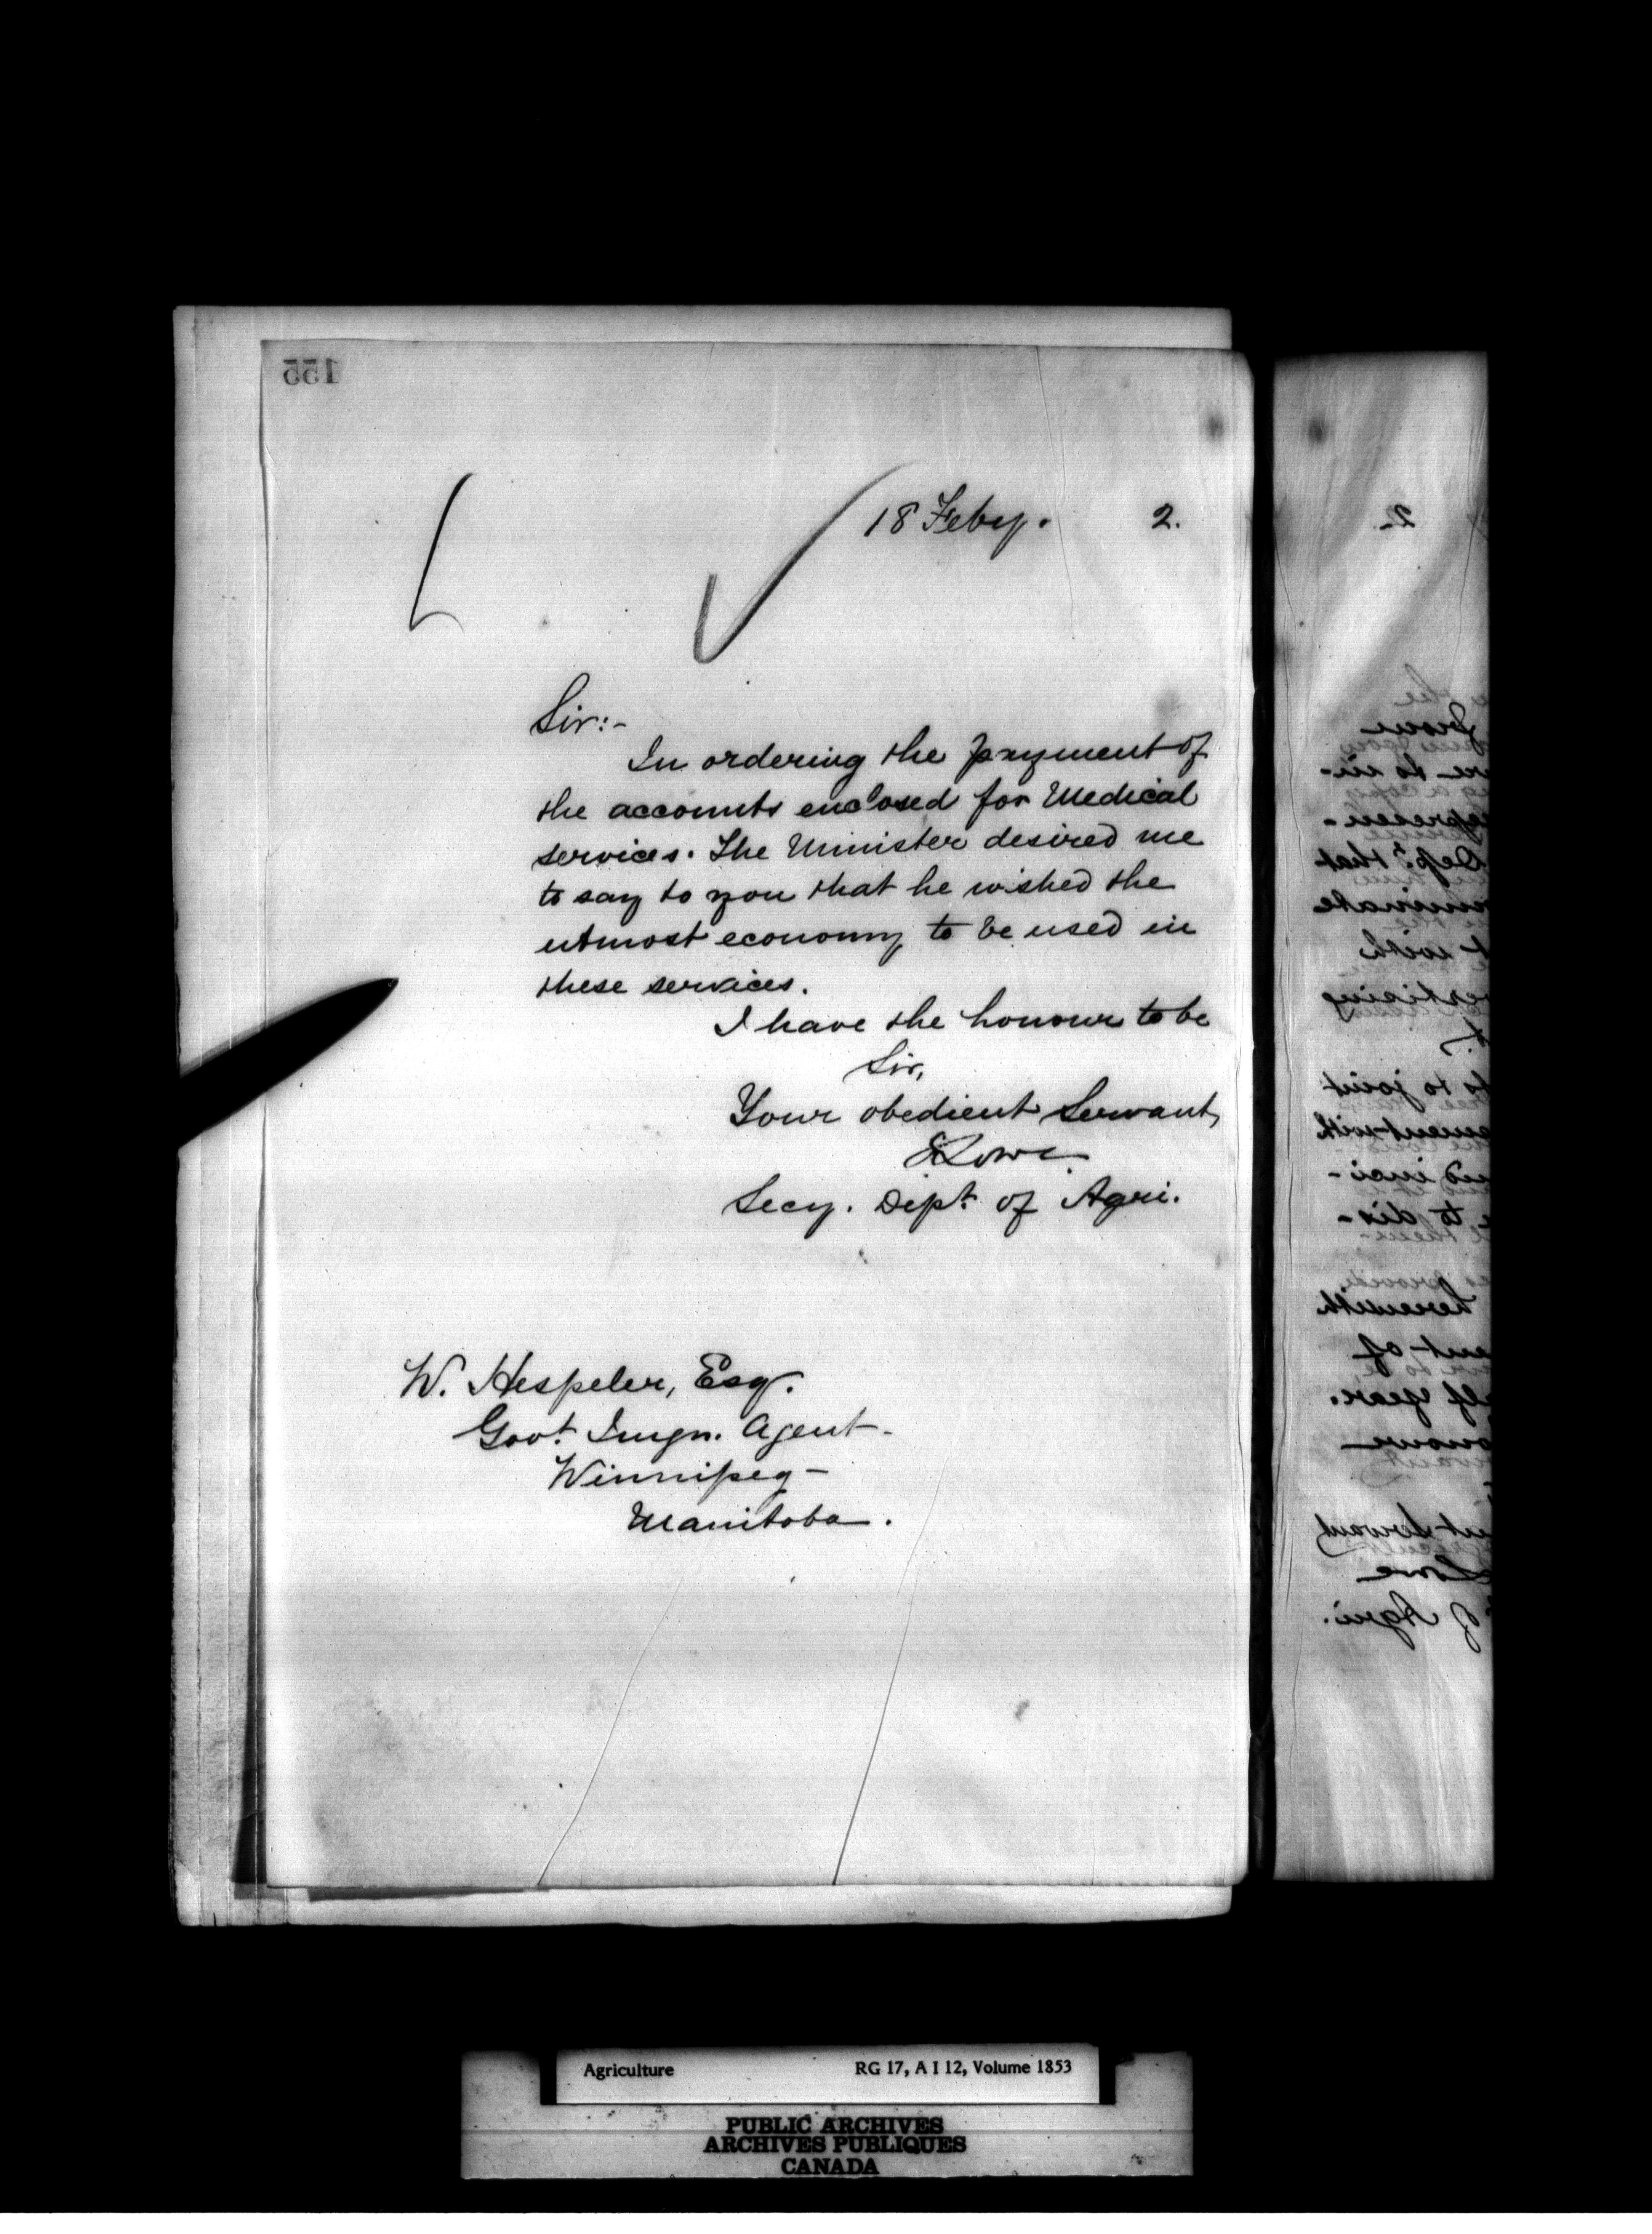 155
18 Feby. 2.
Sir:-
In ordering the payment of
the accounts enclosed for Medical
services. The Minister desired me
to say to you that he wished the
utmost economy to be used in
these services.
I have the honour to be
Sir,
Your obedient Servant,
Lowe
Secy. Dept. of Agri.
W. Hespeler, Esq.
Govt. Imgn. Agent-
Winnipeg-
Manitoba.
2.
from
that
with
to joint
to dis-
herewith
year.
Servant
Lowe
Agri.
Agriculture RG 17, A I 12, Volume 1853
PUBLIC ARCHIVES
ARCHIVES PUBLIQUES
CANADA